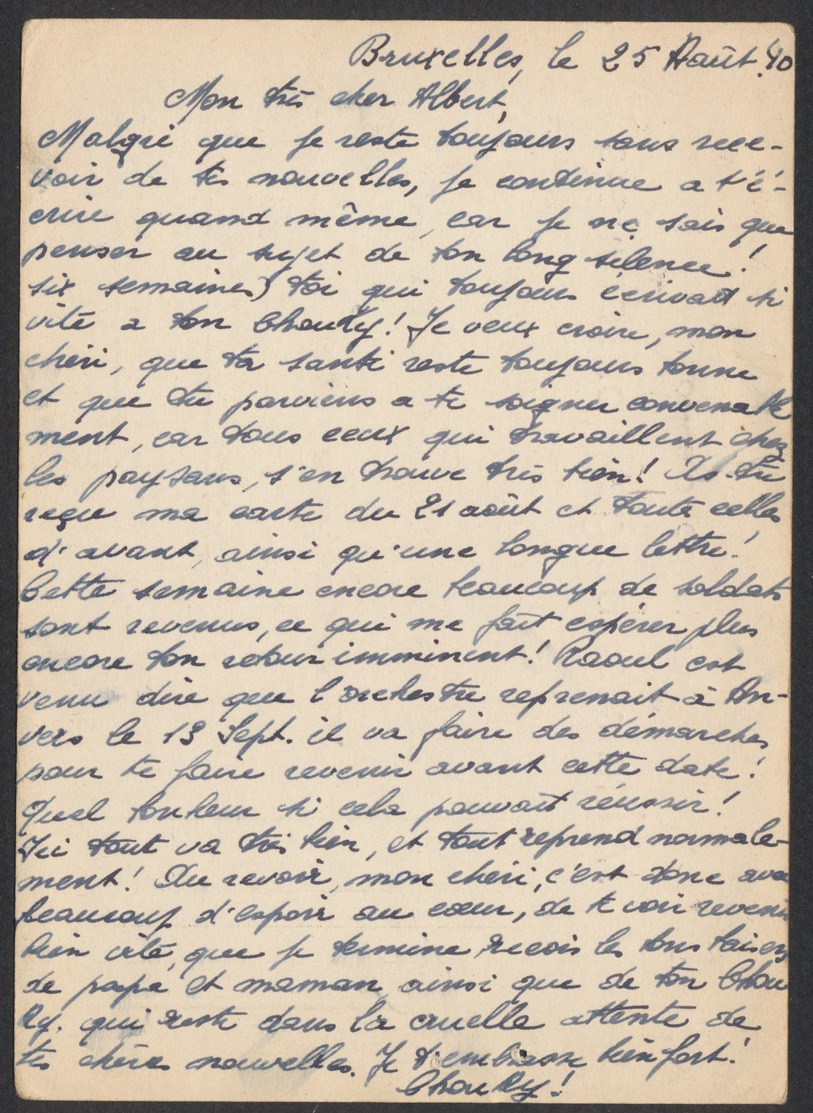 Bruxelles, le 25 Août. 40
Mon très cher Albert,
Malgré que je reste toujours sans rece-
voir de tes nouvelles, je continue a t'é-
crire quand même, car je ne sais que
penser au sujet de ton long silence!
six semaines) toi qui toujours écrivait si
vite a ton Chouky! Je veux croire, mon
chéri, que ta santé reste toujours bonne
et que tu parviens a te soigner convenable
ment, car tous ceux qui travaillent chez
les paysans, s'en trouve très bien! As-tu
reçu ma carte du 21 août et toute celles
d'avant, ainsi qu'une longue lettre!
Cette semaine encore beaucoup de soldats
sont revenus, ce qui me fait espérer plus
encore ton retour imminent! Raoul est
venu dire que l'orchestre reprenait à An-
vers le 13 Sept. il va faire des démarches
pour te faire revenir avant cette date!
Quel bonheur si cela pouvait réussir!
Ici tout va très bien, et tout reprend normale-
ment! Au revoir, mon chéri, c'est donc avec
beaucoup d'espoir au cœur, de te voir revenir
bien vite, que je termine reçois les bons baisers
de papa et maman ainsi que de ton Chou
ky. qui reste dans la cruelle attente de
tes chères nouvelles. Je t'embrasse bien fort!
Chouky!